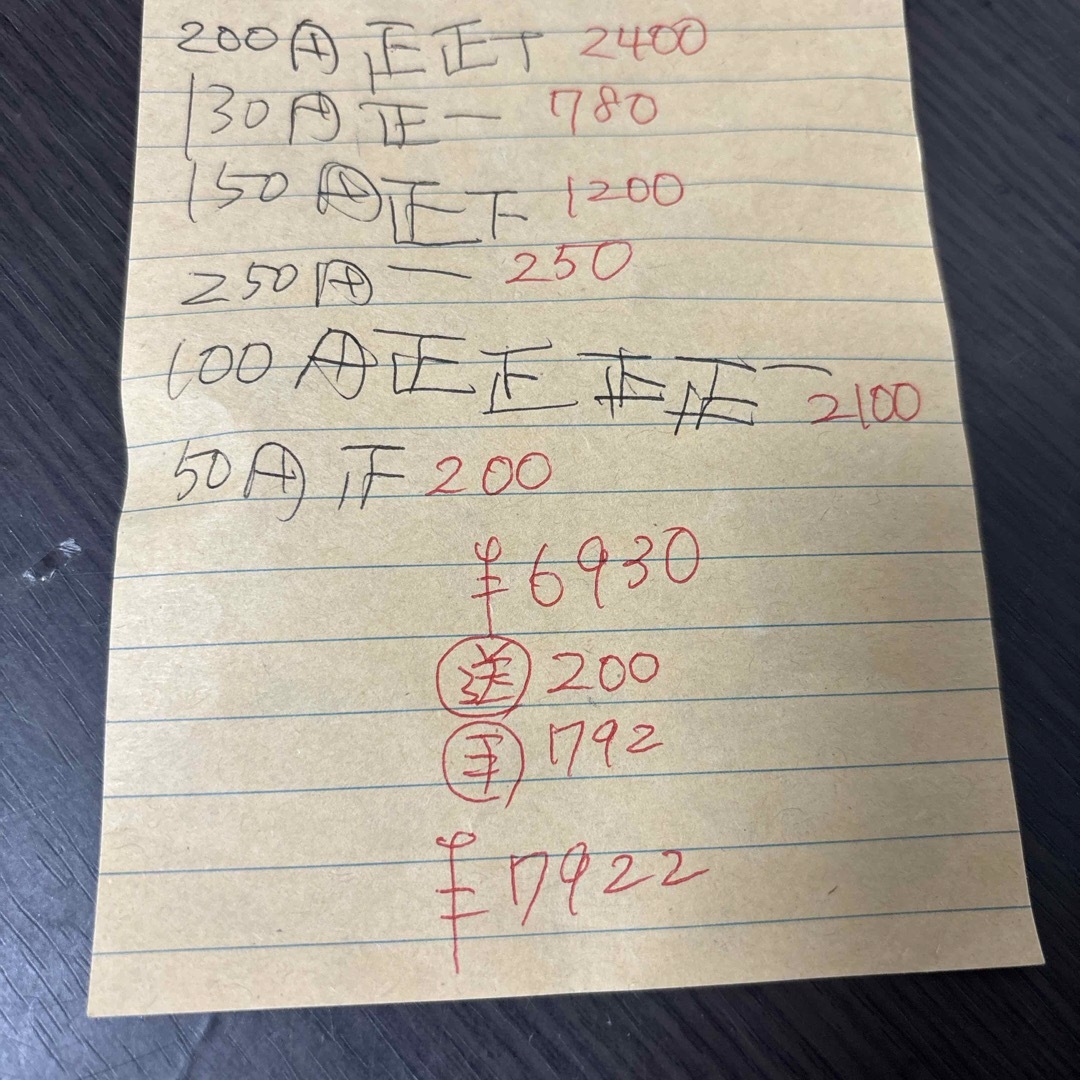 200円 正正丅 2400
130円 正一 780
150円 正下 1200
250円 一 250
100円 正正正正一 2100
50円 正 200
¥6930
送 200
手 792
¥7922